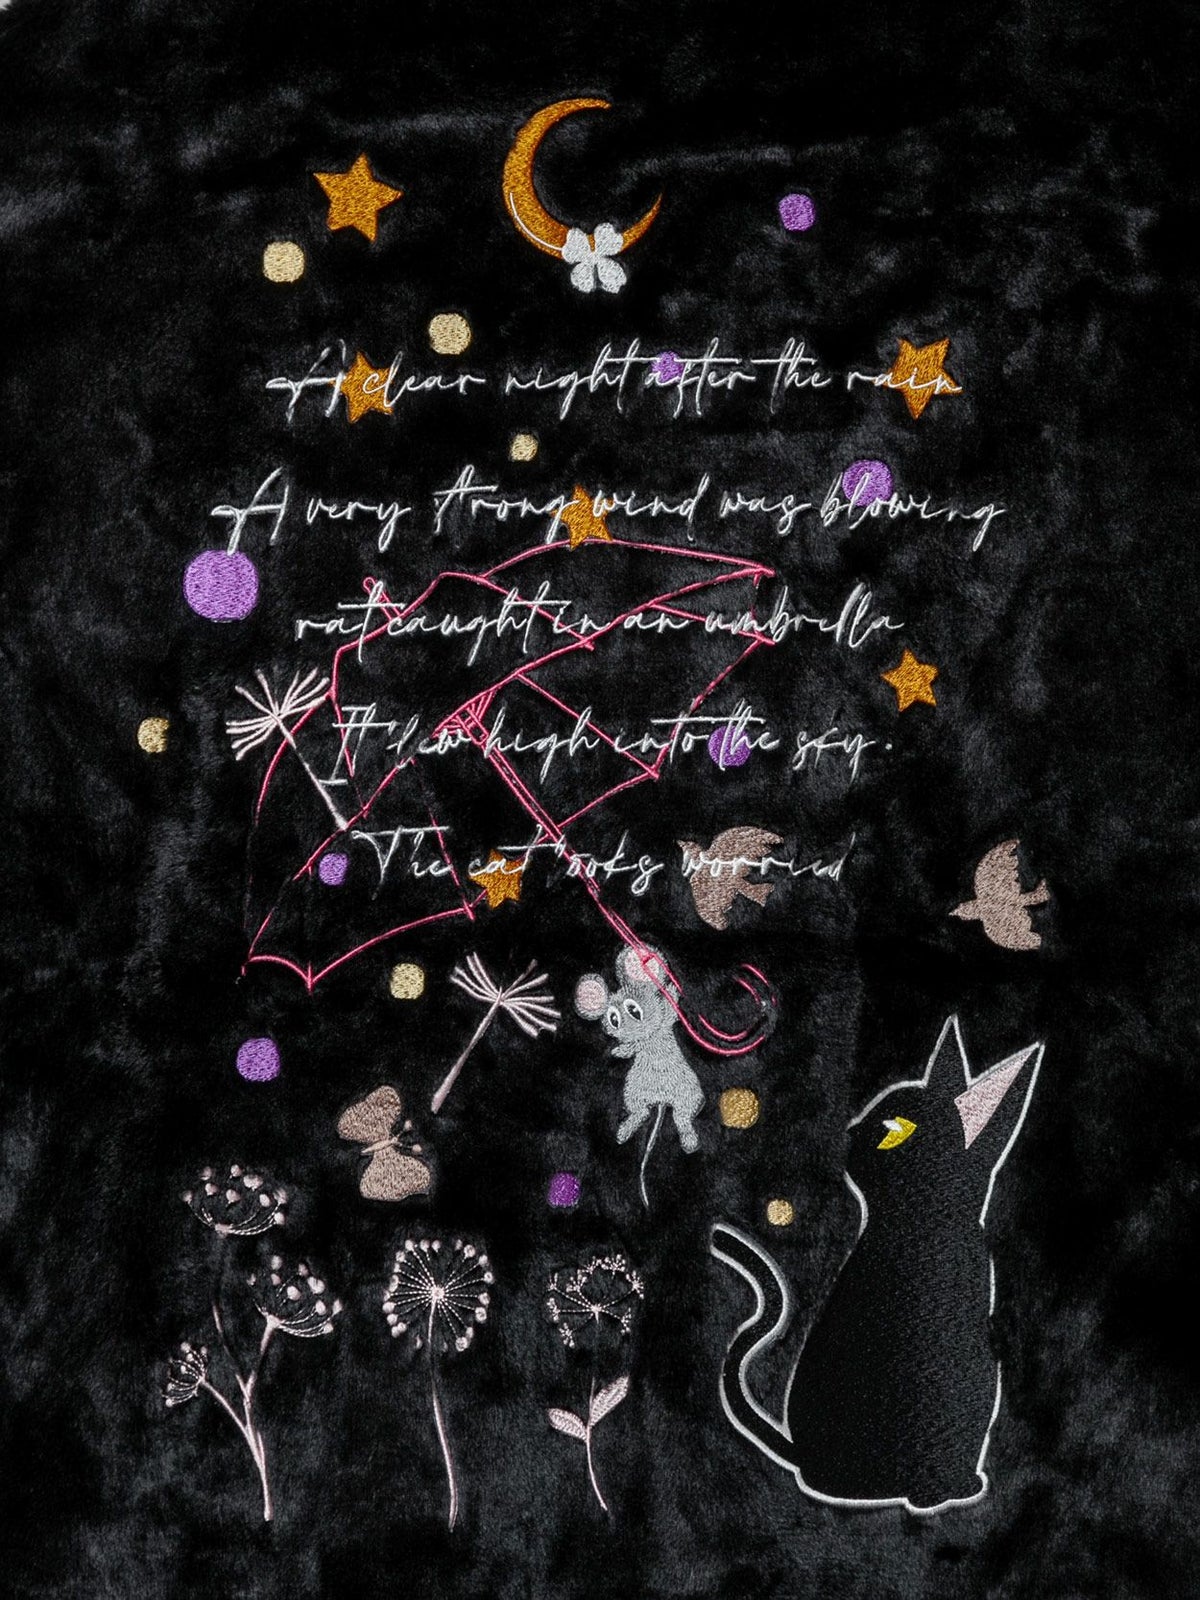 A clear night after the rain
A very strong wind was blowing
rat caught in an umbrella
It flew high into the sky.
The cat looks worried